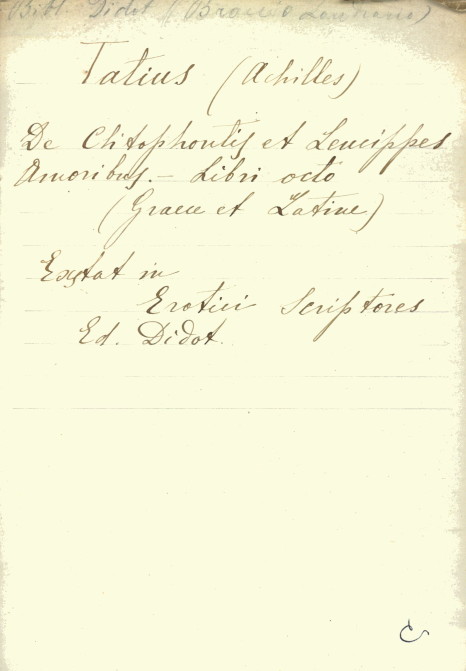 Bibl. Didot (Braccio
Tatius (Achilles)
De Clitophontis et Leucippes
Amoribus. – Libri octo
(Graece et Latine)
Extat in
Erotici Scriptores
Ed. Didot.